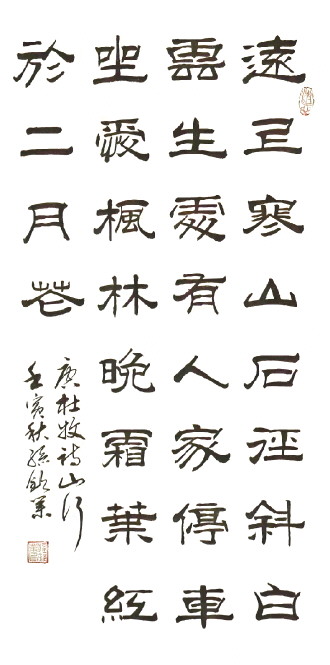 遠上寒山石徑斜白
雲生處有人家停車
坐愛楓林晚霜葉紅
於二月花
唐杜牧詩山行
壬寅秋孫